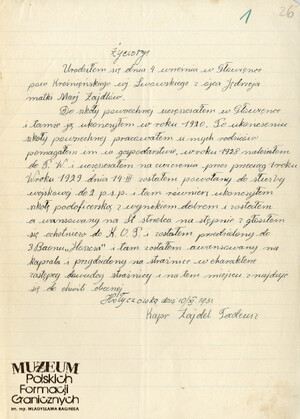 1
26
Życiorys
Urodziłem się dnia 4 wrzesnia w Głowience
pow Krośnieńskiego woj Lwowskiego z ojca Jędrzeja
matki Marji Zajdlów
Do szkoły powszechnej uczęszczałem w Głowience
i tamże ją ukończyłem w roku 1920. Po ukończeniu
szkoły powszechnej pracowałem u mych rodziców
pomagałem im w gospodarstwie, w roku 1928 należałem
do P. W. i uczęszczałem na ćwiczenia przez przeciąg 1 roku
W roku 1929 dnia 14 III zostałem powołany do służby
wojskowej do 2 p.s.p. i tam również ukończyłem
szkołę podoficerską z wynikiem dobrem i zostałem
awansowany na St. strzelca na stępnie z głosiłem
się ochotniczo do K. O. P. i zostałem przydzielony do
3 Baonu „Hoszcza" i tam zostałem awansowany na
kaprala i przydzielony na strażnicę w charakterze
zastępcy dowódcy strażnicy i na tem miejscu znajduje
się do chwili obecnej
dnia 10/XI 1931
Kapr Zajdel Tadeusz
MUZEUM
Polskich
Formacji
Granicznych
im. mjr. WŁADYSŁAWA RAGINISA